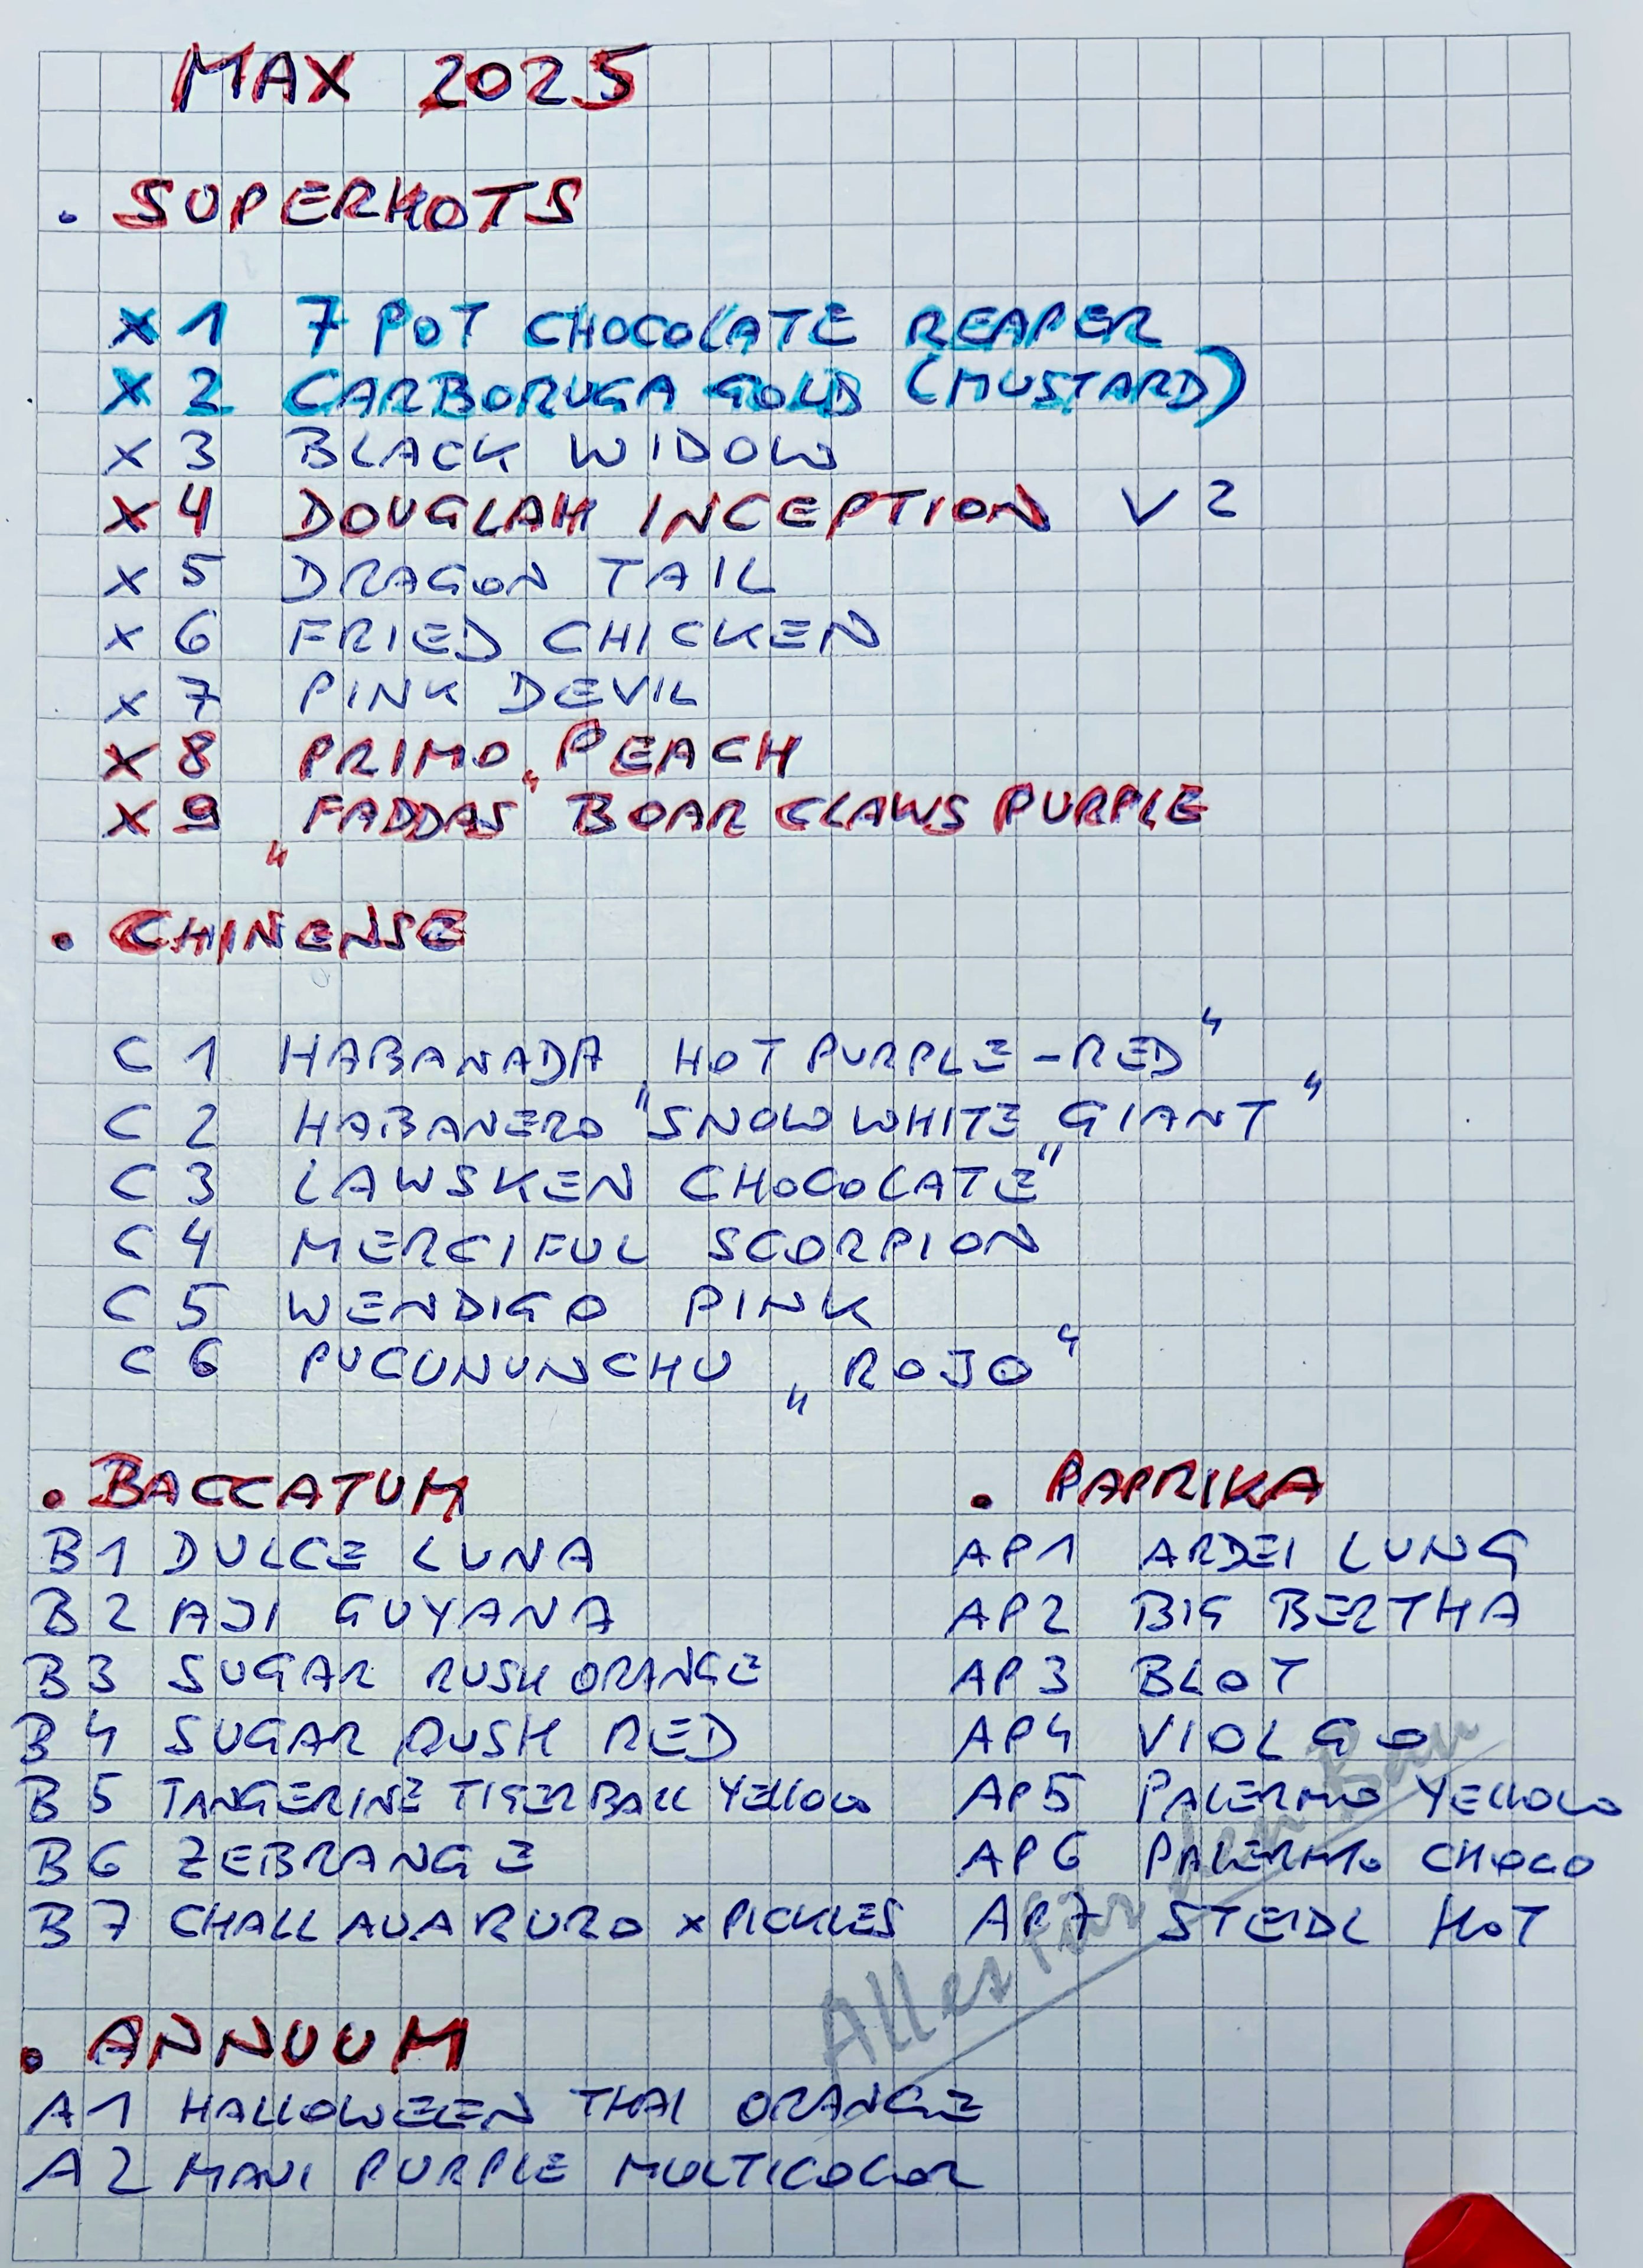 MAX 2025
• SUPERHOTS
X 1 7 POT CHOCOLATE REAPER
X 2 CARBORUGA GOLD (MUSTARD)
X 3 BLACK WIDOW
X 4 DOUGLAH INCEPTION V2
X 5 DRAGON TAIL
X 6 FRIED CHICKEN
X 7 PINK DEVIL
X 8 PRIMO PEACH
X 9 „FADDAS“ BOAR CLAWS PURPLE
• CHINENSE
C 1 HABANADA „HOT PURPLE-RED“
C 2 HABANERO "SNOW WHITE GIANT"
C 3 LAWSKEN „CHOCOLATE"
C 4 MERCIFUL SCORPION
C 5 WENDIGO PINK
C 6 PUCUNUNCHU „ROJO“
• BACCATUM
B1 DULCE LUNA
B2 AJI GUYANA
B3 SUGAR RUSH ORANGE
B4 SUGAR RUSH RED
B5 TANGERINE TIGERBALL YELLOW
B6 ZEBRANGE
B7 CHALLAUARURO x PICKLES
• PAPRIKA
AP1 ARDEI LUNG
AP2 BIG BERTHA
AP3 BLOT
AP4 VIOLGO
AP5 PALERMO YELLOW
AP6 PALERMO CHOCO
AP7 STEIDL HOT
Alles für den Bau
• ANNUUM
A1 HALLOWEEN THAI ORANGE
A2 MAVI PURPLE MULTICOLOR